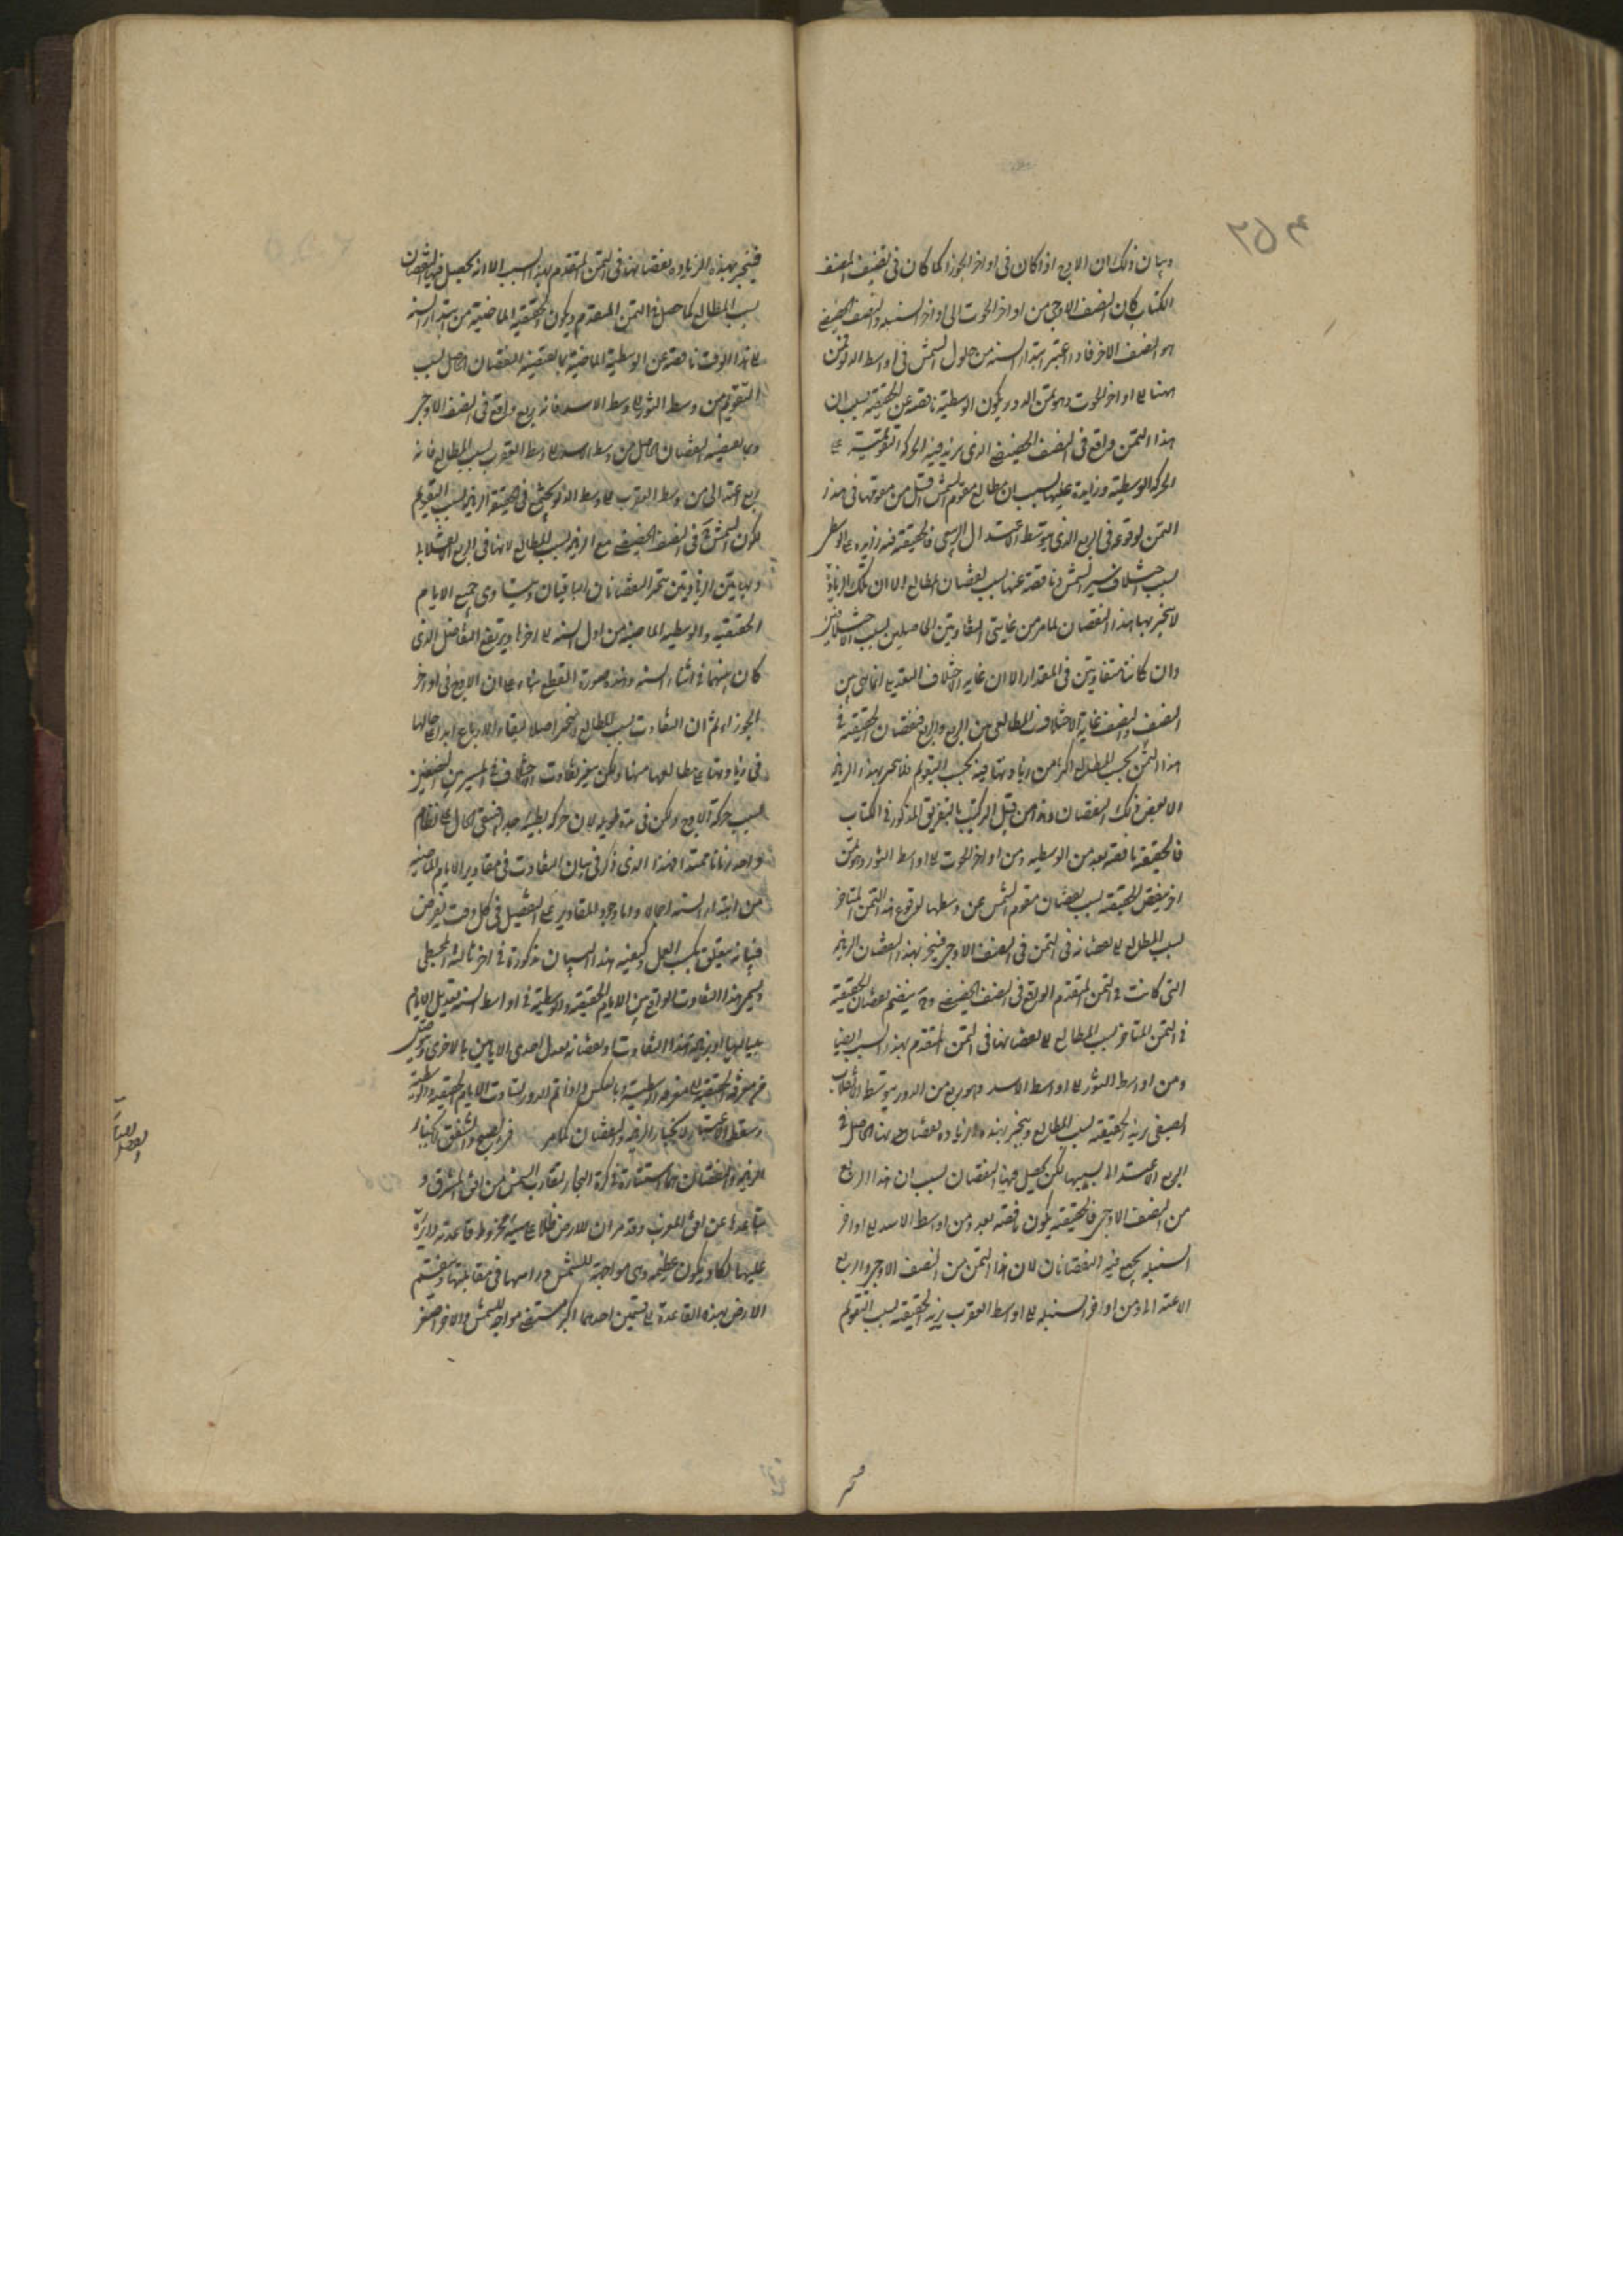 وبيان ذلك ان الاوج اذا كان فى اواخر الجوزا كما كان فى تصنيف المصنف
الكتاب كان النصف الاوجى من اواخر الحوت الى اواخر السنبله والنصف الحضيضى
هو النصف الاخر فاذا اعتبر ابتدا السنه من حلول الشمس فى اواسط الدلو فمن
هنا الى اواخر الحوت وهو ثمن الدور يكون الوسطية ناقصه عن الحقيقيه بسبب ان
هذا الثمن واقع فى النصف الحضيضى الذى يزيد فيه الحركه التقويمية على
الحركه الوسطية وزايدة عليها بسبب ان مطالع مقوم الشمس اقل من مقومها فى هذا
الثمن لوقوعه فى الربع الذى يتوسطه الاعتدال الربيعى فالحقيقيه فيه زايده على الوسطى
بسبب اختلاف سير الشمس وناقصة عنها بسبب نقصان المطالع الا ان تلك الزيادة
لا تنجبر بها هذا النقصان لما مر من غايتى التفاوتين الحاصلين بسبب الاختلافين
وان كانتا متفاوتتين فى المقدار الا ان غايه الاختلاف التعديلى انما هى بين
النصف والنصف وغاية الاختلاف المطالعى بين الربع والربع فنقصان الحقيقيه فى
هذا الثمن بحسب المطالع اكثر من زيادتها فيه بحسب التقويم فلا ينجبر بهذه الزيادة
الا بعض ذلك النقصان وهذا من قبيل التركيب بالتفريق المذكور فى الكتاب
فالحقيقيه ناقصه بعد من الوسطيه ومن اواخر الحوت الى اواسط الثور وهو ثمن
اخر ينقص الحقيقيه بسبب نقصان مقوم الشمس عن وسطها لوقوع هذا الثمن المتاخر
بسبب المطالع الى نقصانه فى الثمن فى النصف الاوجى فينجبر بهذا النقصان الزيادة
التى كانت فى الثمن المتقدم الواقع فى النصف الحضيضى وح ينضم نقصان الحقيقيه
فى الثمن المتاخر بسبب المطالع الى نقصانها فى الثمن المتقدم بهذا السبب ايضا
ومن اواسط الثور الى اواسط الاسد وهو ربع من الدور يتوسطه الانقلاب
الصيفى يزيد الحقيقيه بسبب المطالع وينجبر بهذه الزيادة نقصان الحاصل فى
الربع الاعتدالى بسببها لكن يحصل فيها النقصان بسبب ان هذا الربع
من النصف الاوجى فالحقيقيه يكون ناقصه بعد ومن اواسط الاسد الى اواخر
السنبله يجتمع فيه النقصانان لان هذا الثمن من النصف الاوجى والربع
الاعتدالى ومن اواخر السنبله الى اواسط العقرب يزيد الحقيقيه بسبب التقويم
فينجبر بهذه الزيادة نقصانها فى الثمن المتقدم بهذا السبب الا انه يحصل فيها النقصان
بسبب المطالع كما حصل فى الثمن المتقدم ويكون الحقيقيه الماضيه من ابتدا السنه
الى هذا الوقت ناقصه عن الوسطية الماضية بما يقتضيه النقصان الحاصل بسبب
التقويم من وسط الثور الى وسط الاسد فانه ربع واقع فى النصف الاوجى
وبما يقتضيه النقصان الحاصل من وسط الاسد الى وسط العقرب بسبب المطالع فانه
ربع اعتدالى من وسط العقرب الى وسط الدلو يجتمع فى الحقيقيه الزيادة بسبب التقويم
لكون الشمس ح فى النصف الحضيضى مع الزيادة بسبب المطالع لانها فى الربع الانقلابى
وبهاتين الزيادتين ينجبر النقصانان الباقيان ويتساوى جميع الايام
الحقيقيه والوسطيه الماضيه من اول السنه الى اخرها ويرتفع التفاضل الذى
كان بينهما فى اثناء السنه وهذه صورة المقطع بناء على ان الاوج فى اواخر
الجوزاء ثم ان التفاوت بسبب المطالع لا ينجبر اصلا لبقاء الارباع ابدا بحالها
فى زيادتها على مطالعها منها ولكن يتغير تفاوت اختلاف المسير بين النصفين
بسبب حركه الاوج ولكن فى مدة طويله لان حركته بطيئه جدا فيبقى الحال على نظام
واحد زمانا ممتدا فهذا الذى ذكر فى بيان التفاوت فى مقادير الايام الماضيه
من ابتدا السنه اجمالا واما وجود المقادير على التفصيل فى كل وقت يفرض
فبيانه يتعلق بكتب العمل وكيفيه هذا البيان مذكورة فى اخر ثالثة المجسطى
ويسمى هذا التفاوت الواقع بين الايام الحقيقيه والوسطية فى اواسط السنه تعديل الايام
بلياليها اذ بزيادة هذا التفاوت او نقصانه يعدل احدى الايامين بالاخرى
من معرفة الحقيقيه الى معرفه الوسطية وبالعكس واذا تم الدور تساوت الايام الحقيقيه والوسطية
وسقط الاعتبار لانجبار الزيادة والنقصان كما مر فى الصبح والشفق
الزيادة والنقصان هما استنارة فى كرة البخار لتقارب الشمس من افق المشرق و
تباعدها عن افق المغرب وقد مر ان للارض ظلا على هيئة مخروط قاعدته دايرة
عليها تكاد يكون عظيمه وهى مواجهة للشمس وراسها فى مقابلتها وينقسم
الارض بهذه القاعدة الى قسمين احدهما اكبر مستضئ مواجه للشمس والاخر اصغر